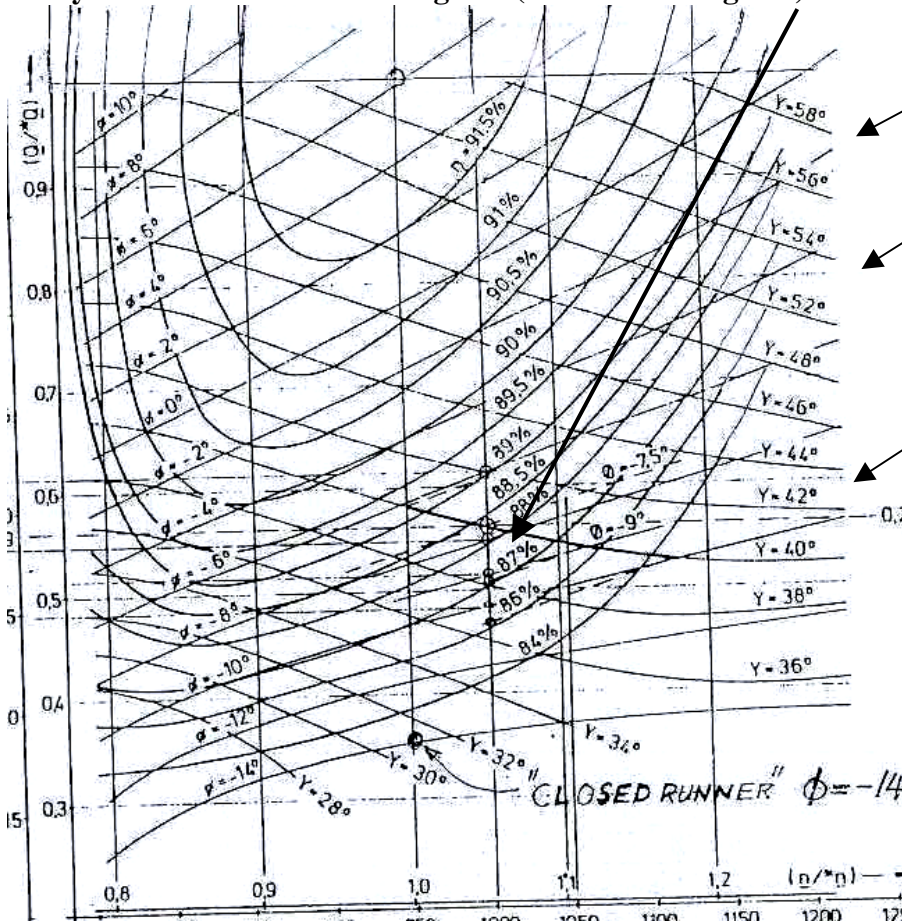 (Q/*Q)
0,9
0,8
0,7
0,6
0,5
0,4
0,3
ϕ=10°
ϕ=8°
ϕ=6°
ϕ=4°
ϕ=2°
ϕ=0°
ϕ=-2°
ϕ=-4°
ϕ=-6°
ϕ=-8°
ϕ=-10°
ϕ=-12°
ϕ=-14°
η=91.5%
91%
90.5%
90%
89,5%
89%
88.5%
88%
87%
86%
84%
Y=58°
Y=56°
Y=54°
Y=52°
Y=48°
Y=46°
Y=44°
Y=42°
Y=40°
Y=38°
Y=36°
Y=34°
Y=32°
Y=30°
Y=28°
Ø=-7,5°
Ø=-9°
"CLOSED RUNNER" ϕ=-14
0,8 0,9 1,0 1,1 1,2 (n/*n)
1000 1050 1100 1150 1200